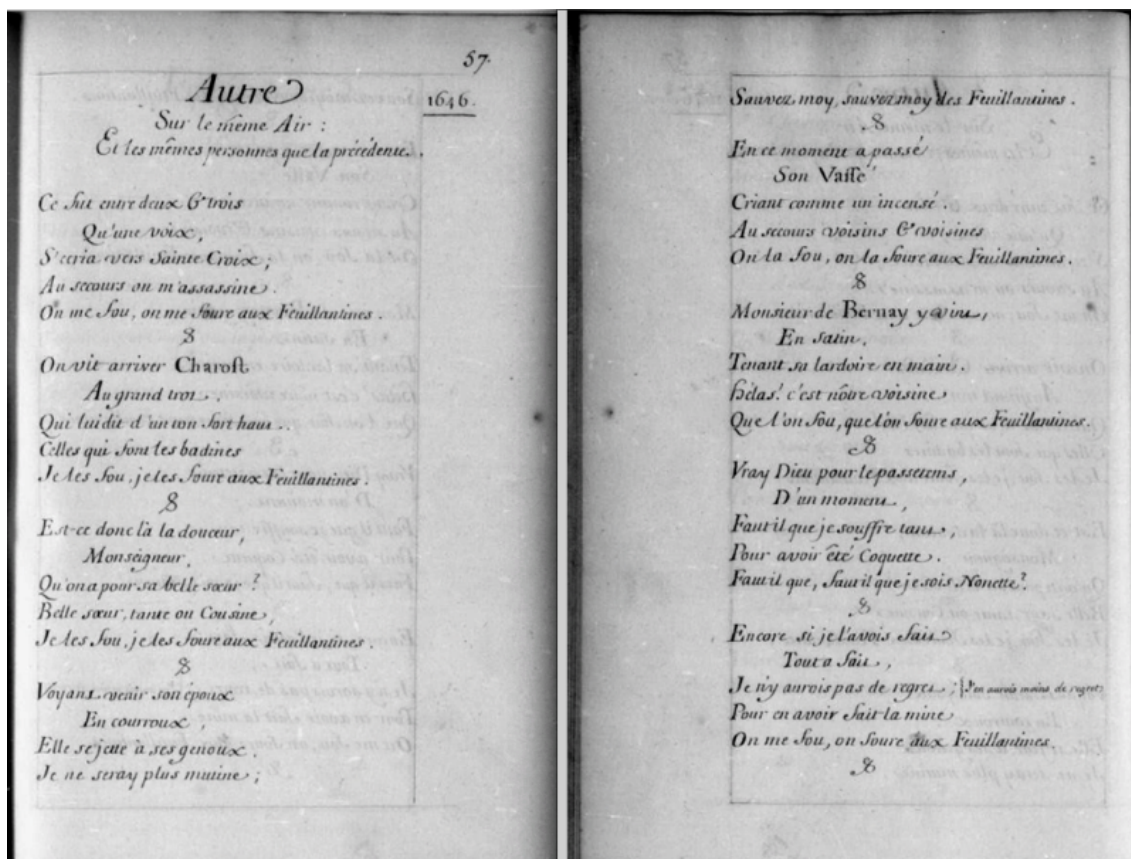 57.
Autre
1646.
Sur le même Air :
Et les mêmes personnes que la précédente.
Ce fut entre deux & trois
Qu'une voix,
S'ecria vers Sainte Croix ;
Au secours on m'assassine.
On me fou, on me foure aux Feuillantines.
On vit arriver Charost
Au grand trot.
Qui lui dit d'un ton fort haut.
Celles qui font les badines
Je les fou, je les foure aux Feuillantines.
Est-ce donc là la douceur,
Monseigneur,
Qu'on a pour sa belle sœur ?
Belle sœur, tante ou Cousine,
Je les fou, je les foure aux Feuillantines.
Voyant venir son époux
En courroux,
Elle se jette à ses genoux.
Je ne seray plus mutine ;
Sauvez moy, sauvez moy des Feuillantines.
En ce moment a passé
Son Vassé
Criant comme un incensé.
Au secours voisins & voisines
On la fou, on la foure aux Feuillantines.
Monsieur de Bernay y vint,
En satin,
Tenant sa lardoire en main.
hélas ! c'est nôtre voisine
Que l'on fou, que l'on foure aux Feuillantines.
Vray Dieu pour le passetems,
D'un moment,
Faut il que je souffre tant,
Pour avoir été Coquette.
Faut il que, faut il que je sois Nonette ?
Encore si je l'avois fait
Tout a fait,
Je n'y aurois pas de regret ; {J'en aurois moins de regret
Pour en avoir fait la mine
On me fou, on foure aux Feuillantines.